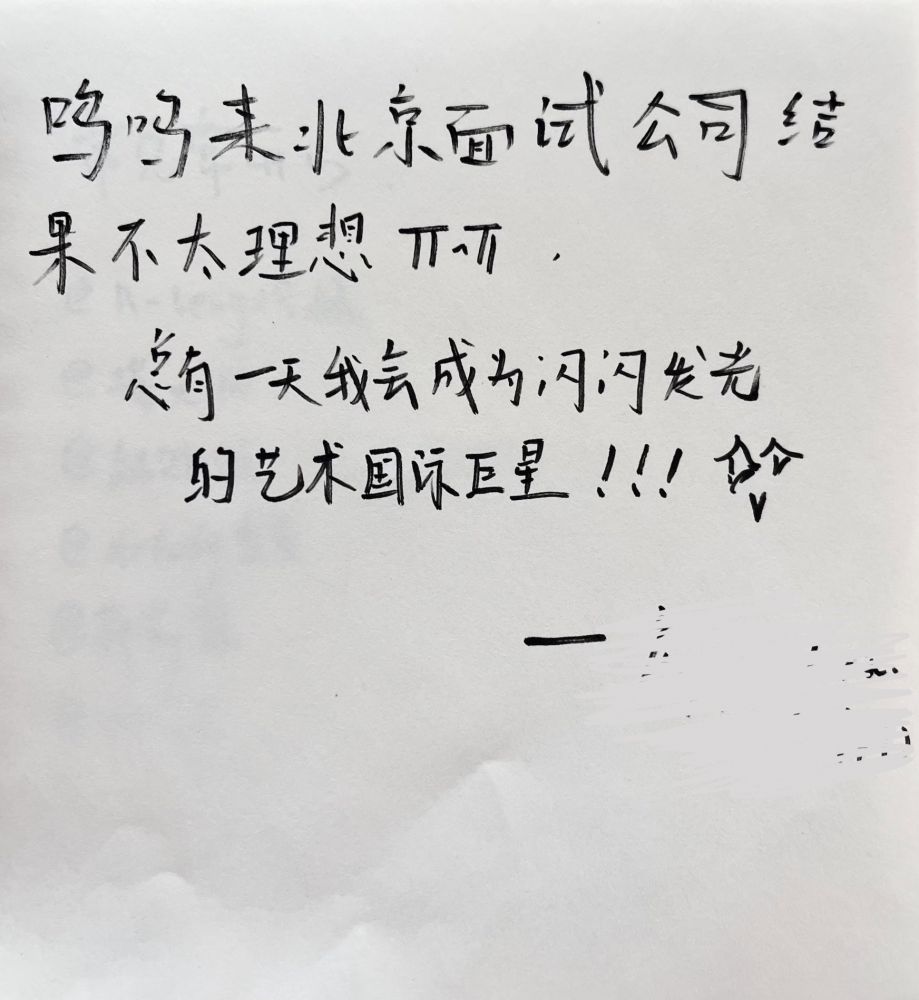 呜呜来北京面试公司结
果不太理想 TT^TT .
总有一天我会成为闪闪发光
的艺术国际巨星!!!
—